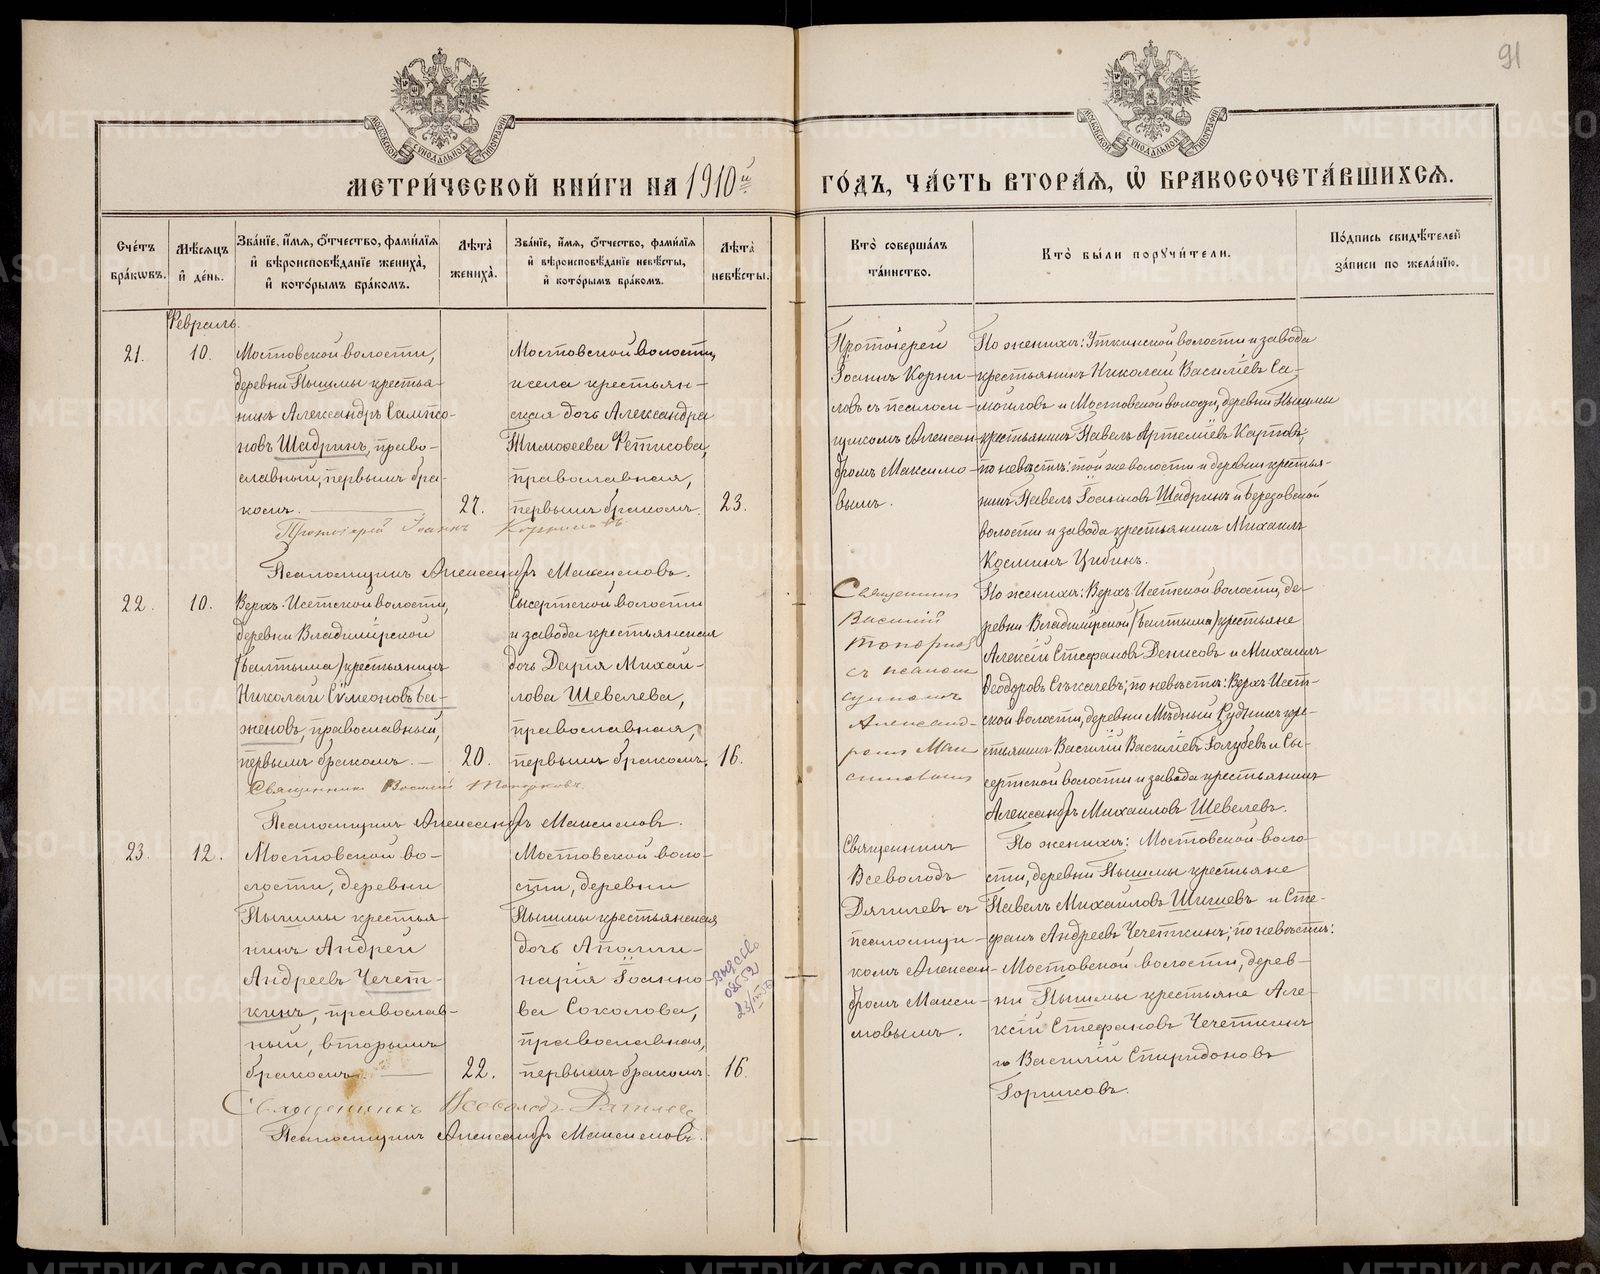 91
МОСКОВСКОЙ СУНОДАЛЬНОЙ ТИПОГРАФІИ
МОСКОВСКОЙ СУНОДАЛЬНОЙ ТИПОГРАФІИ
МЕТРИ́ЧЕСКОЙ КНИ́ГИ НА 1910й ГО́ДЪ, ЧА́СТЬ ВТОРА́Я, Ѡ БРАКОСОЧЕТА́ВШИХСЯ.
Сче́тъ бра́кѡвъ.
Мѣ́сяцъ и҆ де́нь.
Зва́нїе, и҆́мя, ѻ҆́тчество, фами́лїя и҆ вѣроисповѣ́данїе жениха̀, и҆ кото́рымъ бра́комъ.
Лѣ́та̀ жениха̀.
Зва́нїе, и҆́мя, ѻ҆́тчество, фами́лїя и҆ вѣроисповѣ́данїе невѣ́сты, и҆ кото́рымъ бра́комъ.
Лѣ́та̀ невѣ́сты.
Кто̀ соверша́лъ та́инство.
Кто̀ бы́ли поручи́тели.
По́дпись свидѣ́телей за́писи по жела́нїю.
Февраль.
21.
10.
Мостовской волости,
деревни Пышмы крестья-
нинъ Александръ Сампсо-
новъ Шадринъ, право-
славный, первымъ бра-
комъ.
27.
Мостовской волости
и села крестьян-
ская дочь Александра
Тимоѳеева Фетисова,
православная,
первымъ бракомъ.
23.
Протоіерей
Іоаннъ Корни-
ловъ съ псалом-
щикомъ Алексан-
дромъ Максимо-
вымъ.
По женихѣ: Уткинской волости и завода
крестьянинъ Николай Василіевъ Са-
мойловъ и Мостовской волости, деревни Пышмы
крестьянинъ Павелъ Артеміевъ Карповъ;
по невѣстѣ: той же волости и деревни крестья-
нинъ Павелъ Іоанновъ Шадринъ и Березовской
волости и завода крестьянинъ Михаилъ
Космннъ Цыбинъ.
Протоіерей Іоаннъ Корниловъ
Псаломщикъ Александръ Максимовъ.
22.
10.
Верхъ-Исетской волости,
деревни Владимірской
(Балтыма) крестьянинъ
Николай Сѵмеоновъ Ба-
женовъ, православный,
первымъ бракомъ.
20.
Сысертской волости
и завода крестьянская
дочь Дарія Михаи-
лова Шевелева,
православная,
первымъ бракомъ.
16.
Священникъ
Василій
Топорков
съ псалом
щикомъ
Александ-
ромъ Мак
симовымъ
По женихѣ: Верхъ Исетской волости, де-
ревни Владимірской (Балтыма) крестьяне
Алексій Стефановъ Денисовъ и Михаилъ
Ѳеодоровъ Сѣкачевъ; по невѣстѣ: Верхъ Исет-
ской волости, деревни Мѣдный Рудникъ кре-
стьянинъ Василій Василіевъ Голубевъ и Сы-
сертской волости и завода крестьянинъ
Александръ Михаиловъ Шевелевъ.
Священникъ Василій Топорковъ.
Псаломщикъ Александръ Максимовъ.
23.
12.
Мостовской во-
лости, деревни
Пышмы крестья-
нинъ Андрей
Андреевъ Чечет-
кинъ, православ-
ный, вторымъ
бракомъ.
22.
Мостовской воло-
сти, деревни
Пышмы крестьянская
дочь Аполли-
нарія Іоанно-
ва Соколова,
православная,
первымъ бракомъ.
16.
Священникъ
Всеволодъ
Дягилевъ съ
псаломщи-
комъ Алексан-
дромъ Макси-
мовымъ.
По женихѣ: Мостовской воло-
сти, деревни Пышмы крестьяне
Павелъ Михаиловъ Шишевъ и Сте-
фанъ Андреевъ Чечеткинъ; по невѣстѣ:
Мостовской волости, дерев-
ни Пышмы крестьяне Але-
ксій Стефановъ Чечеткинъ
и Василій Спиридоновъ
Горшковъ.
Священникъ Всеволодъ Дягилевъ
Псаломщикъ Александръ Максимовъ.
METRIKI.GASO-URAL.RU